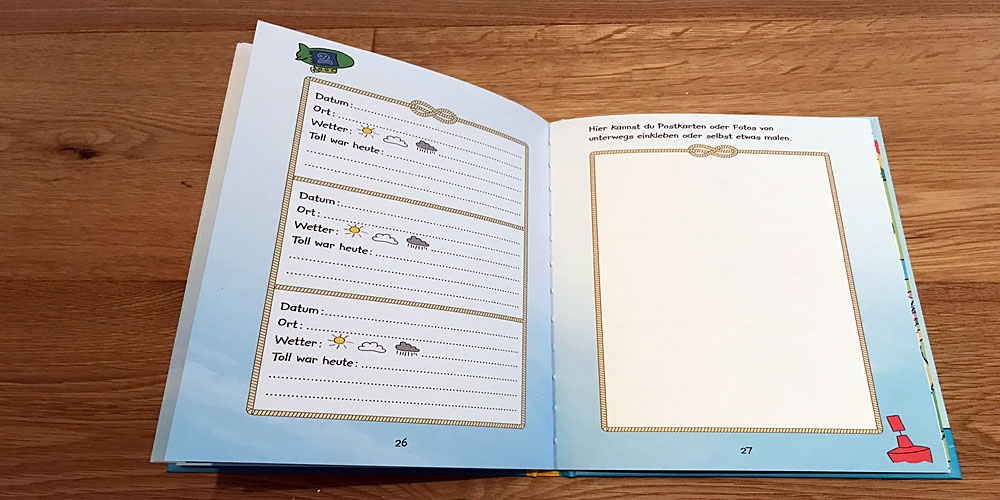 2
Datum:
Ort:
Wetter:
Toll war heute:
Datum:
Ort:
Wetter:
Toll war heute:
Datum:
Ort:
Wetter:
Toll war heute:
26
Hier kannst du Postkarten oder Fotos von
unterwegs einkleben oder selbst etwas malen.
27